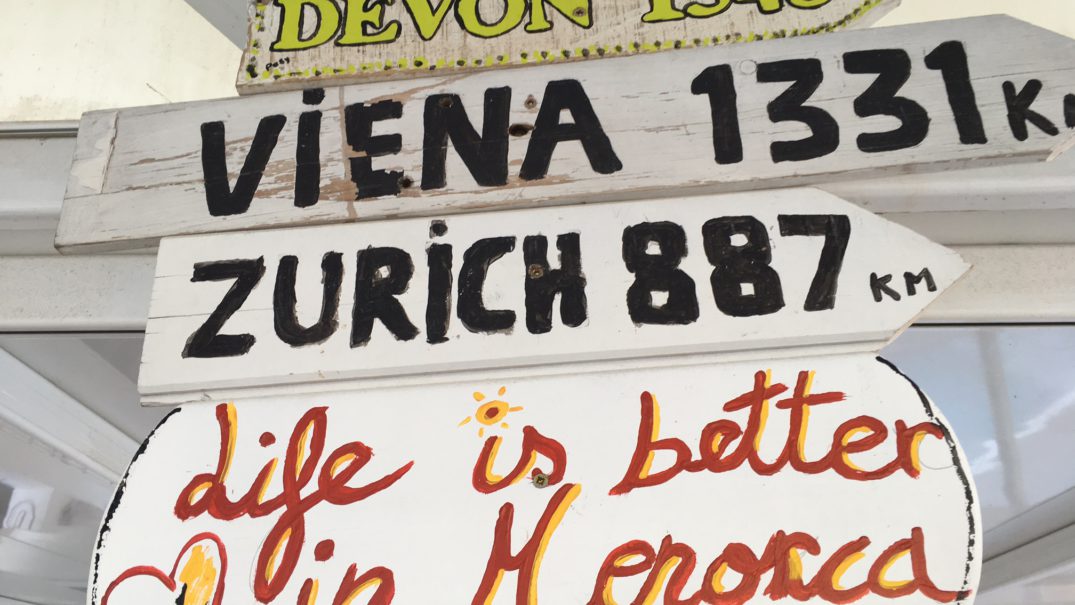 DEVON
VIENA 1331 KM
ZURICH 887 KM
Life is better
in Menorca